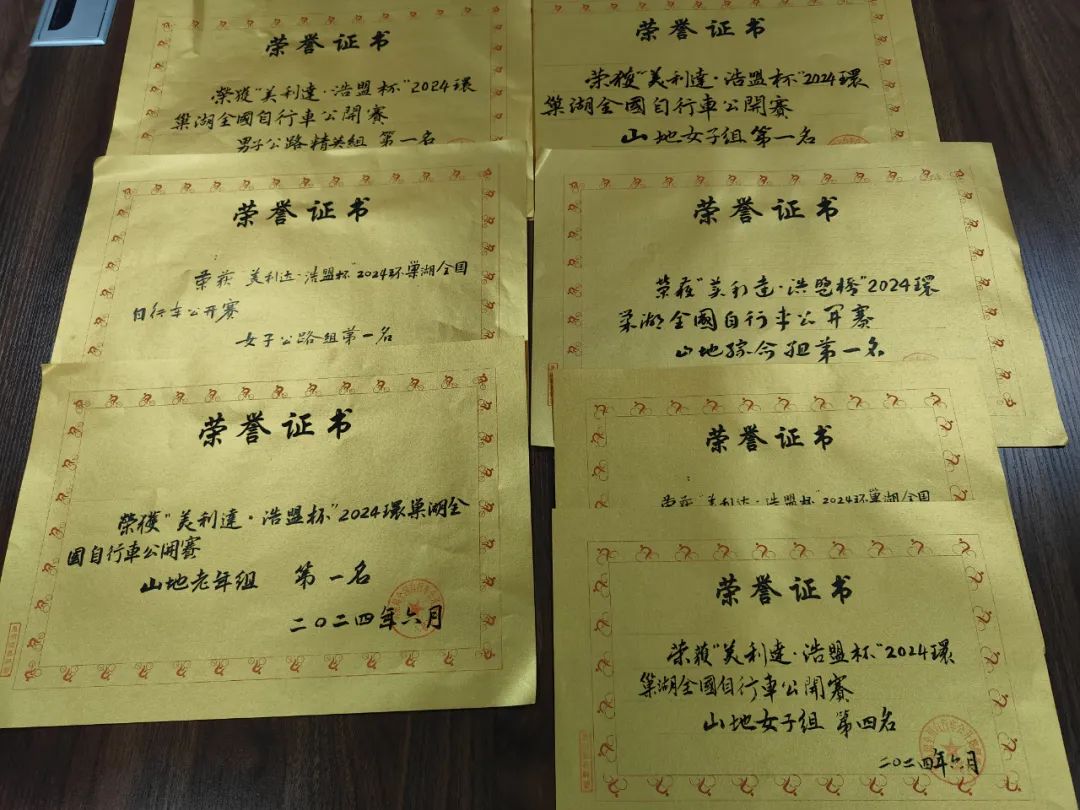 荣誉证书
榮獲“美利達·浩盟杯”2024環
巢湖全國自行車公開賽
男子公路精英组 第一名
荣誉证书
荣獲“美利達·浩盟杯”2024環
巢湖全國自行車公開賽
山地女子组 第一名
荣誉证书
荣获“美利达·浩盟杯”2024环巢湖全国
自行车公开赛
女子公路组第一名
荣誉证书
荣获“美利達·浩盟杯”2024環
巢湖全國自行車公開賽
山地综合组第一名
荣誉证书
榮獲“美利達·浩盟杯”2024環巢湖全
國自行車公開賽
山地老年组 第一名
二〇二四年六月
荣誉证书
荣获“美利达·浩盟杯”2024环巢湖全国
荣誉证书
荣獲“美利達·浩盟杯”2024環
巢湖全國自行車公開賽
山地女子组 第四名
二〇二四年六月